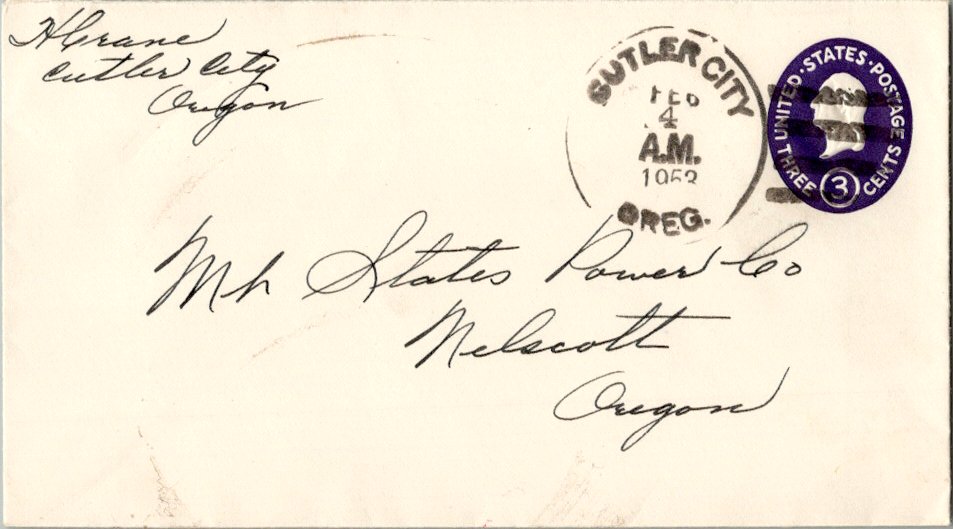 H Crane
Cutler City
Oregon
CUTLER CITY
FEB
4
A.M.
1953
OREG.
UNITED · STATES · POSTAGE
THREE 3 CENTS
Mh States Power Co
Nelscott
Oregon